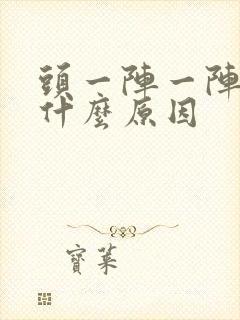 頭一陣一陣
什麼原因
寶萊